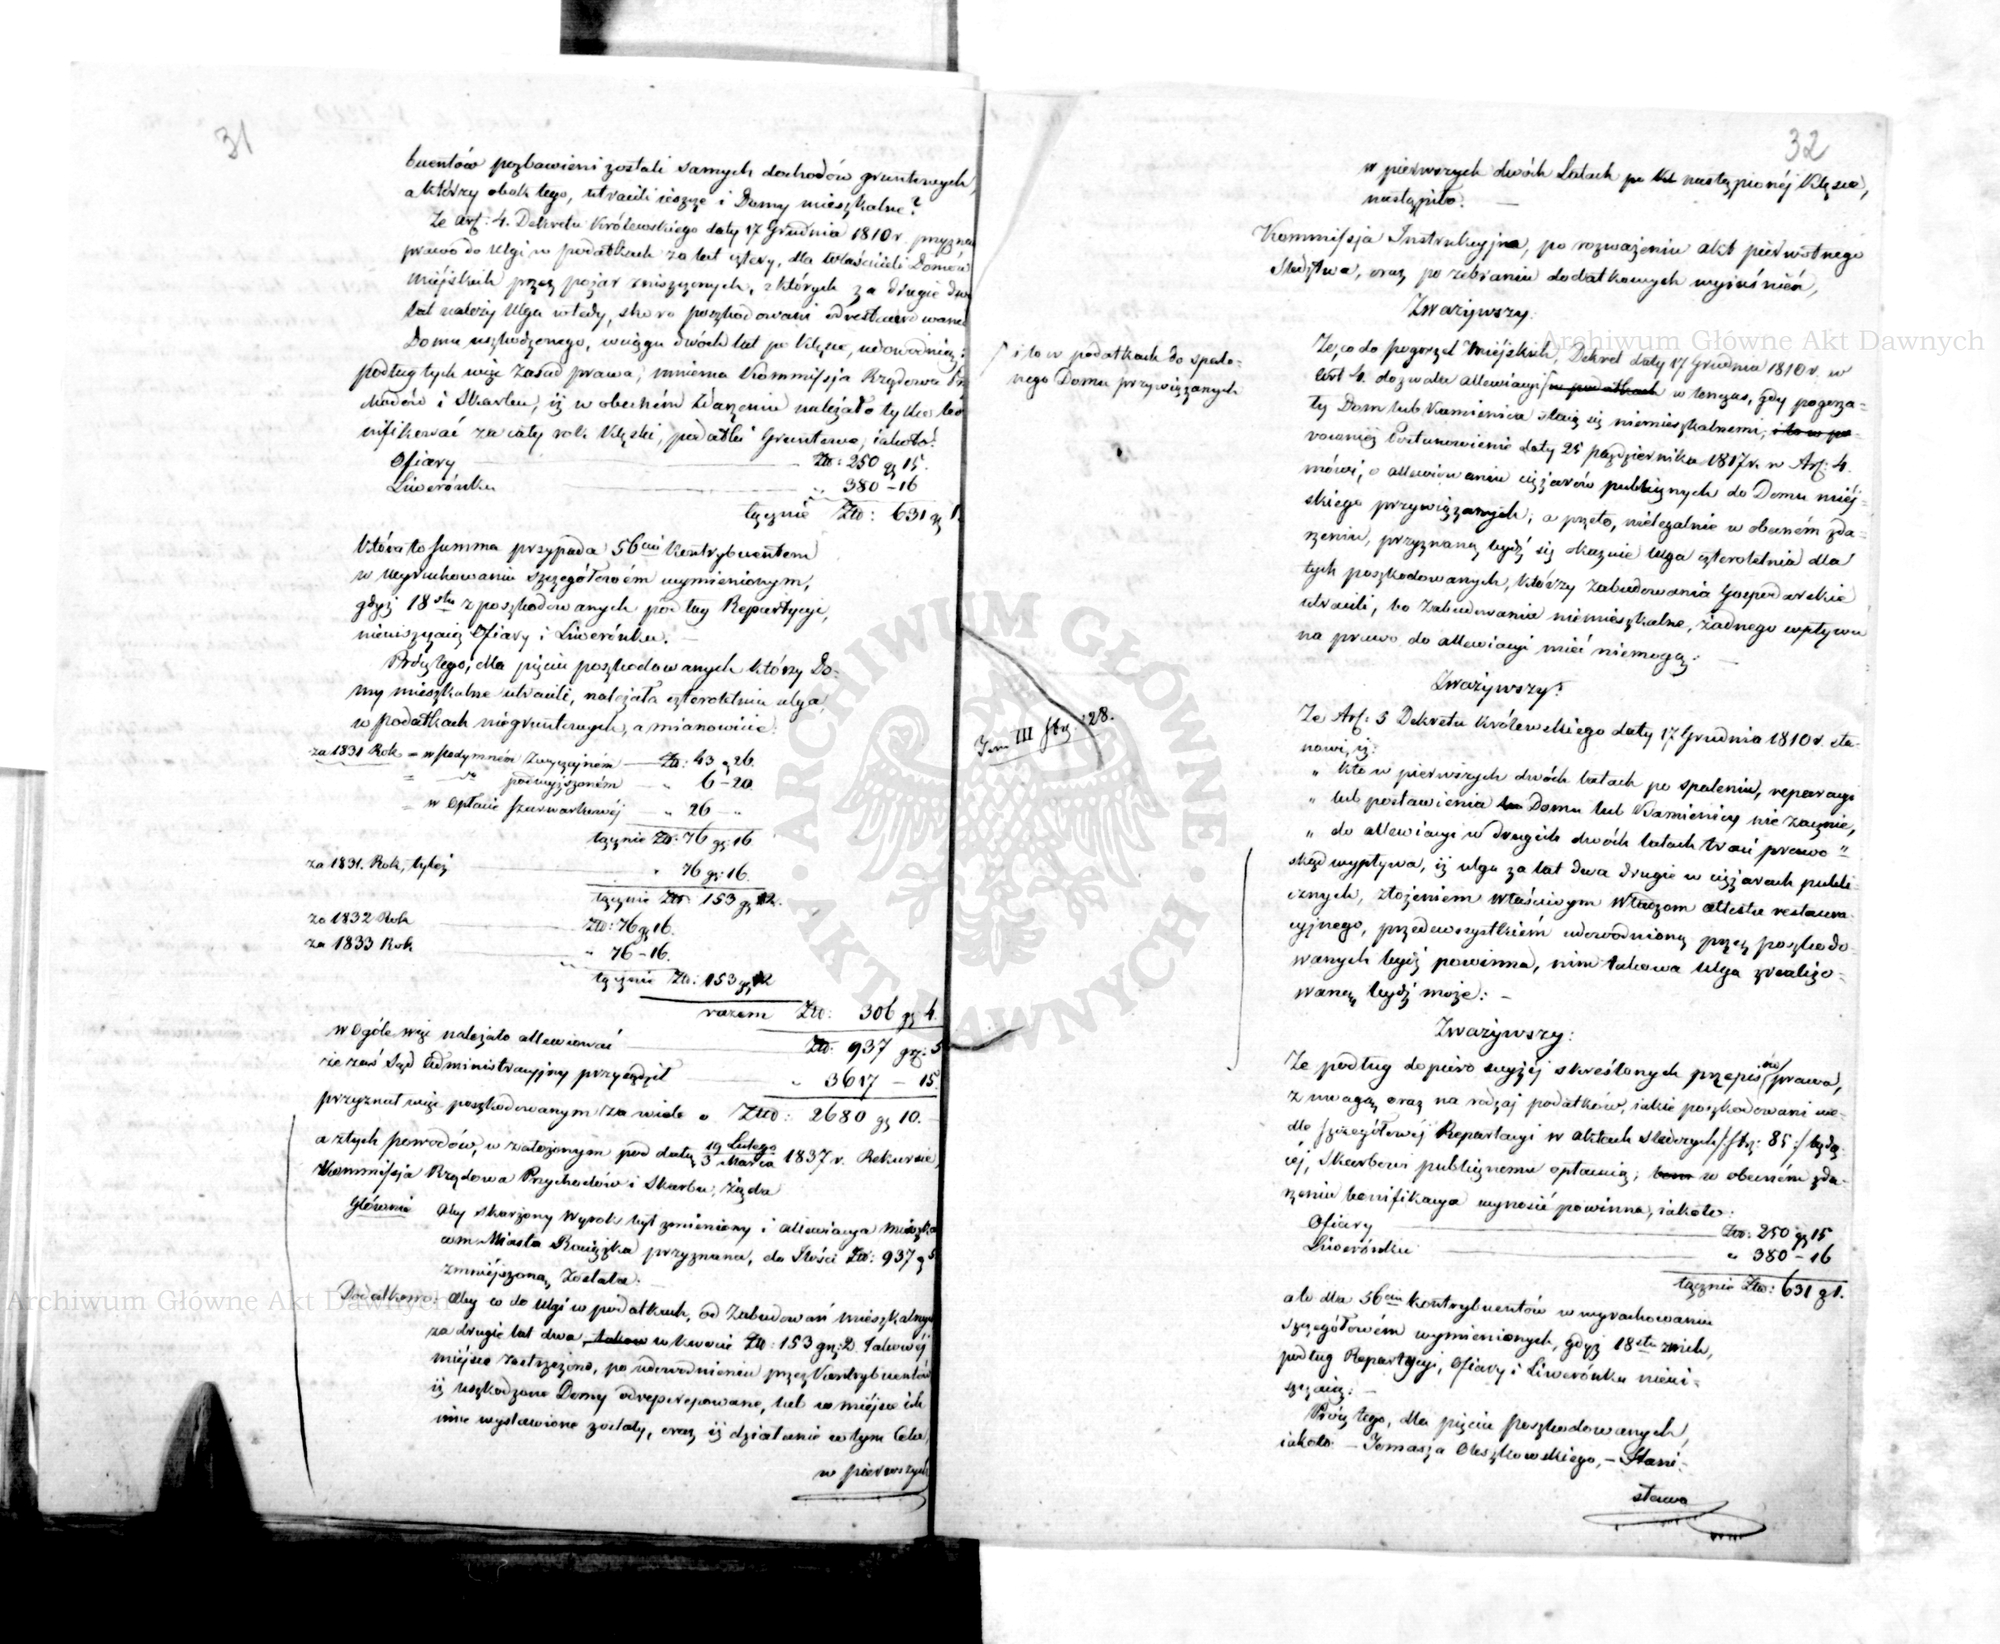 31
buentów pozbawieni zostali samych dochodów gruntowych,
a którzy obok tego, utracili ieszcze i Domy mieszkalne?
Że art: 4. Dekretu Królewskiego daty 17 Grudnia 1810 r. przyzna
prawo do ulgi w podatkach za lat cztery, dla Właścicieli Domów
Miejskich przez pożar zniszczonych, z których za drugie dwa
lat należy ulga wtedy, skoro poszkodowani odrestaurowanie
Domu uszkodzonego, w ciągu dwóch lat po klęsce, udowodnią:
podług tych więc zasad prawa, mniema Kommissja Rządowa Przy
chodów i Skarbu, iż w obecném zdarzeniu należało tylko bo
nifikować za cały rok klęski, podatki Gruntowe, iakoto:
Ofiary Złt: 250 g 15.
Liwerónku „ 380 – 16
łącznie Złt: 631 g 1.
która to summa przypada 56ciu Kontrybuentom
w wyrachowaniu szczegółowém wymienionym,
gdyż 18stu z poszkodowanych podług Repartycyi,
nieuiszczaią Ofiary i Liwerónku. –
Prócz tego, dla pięciu poszkodowanych którzy Do-
my mieszkalne utracili, należała czteroletnia ulga
w podatkach niegruntowych, a mianowicie:
za 1831 Rok = w Podymném Zwyczajném Zł: 43 g 26.
= do podwyższoném „ 6 – 20
= w Opłacie szarwarkowéj „ 26 – „
łącznie Zł: 76 g: 16
za 1831. Rok, tyleż „ 76 g: 16.
łącznie Zł: 153 g 2.
za 1832 Rok Złt: 76 g 16.
za 1833 Rok „ 76 – 16.
łącznie Zł: 153 g 2
razem Złt: 306 g 4.
w Ogóle więc należało allewiować Złt: 937 gr: 5
że zaś Sąd Administracyjny przysądził „ 3617 – 15
przyznał więc poszkodowanym za wiele o Złt: 2680 g 10. –
a z tych powodów, w założonym pod datą 19 Lutego / 3 Marca 1837 r. Rekursie,
Kommissja Rządowa Przychodów i Skarbu, żąda
Głównie Aby skarżony Wyrok był zmieniony i allewiacya Mieszkań
com Miasta Raciąża przyznana, do Ilości Złt: 937 g 5
zmniejszoną została. –
Dodatkowo: Aby co do Ulgi w podatkach, od Zabudowań mieszkalnych
za drugie lat dwa, w kwocie Zł: 153 gr: 2. Takowéj
miejsce zastrzeżono, po udowodnieniu przez Kontrybuentów
iż uszkodzone Domy odreperowane, lub w miejsce ich
inne wystawione zostały, oraz iż działanie w tym Celu,
w pierwszych
32
w pierwszych dwóch Latach po nastąpionéj Klęsce,
nastąpiło. –
Kommissja Instrukcyjna, po rozważeniu akt pierwotnego
Śledztwa, oraz po zebraniu dodatkowych wyjaśnień,
Zważywszy:
Że, co do pogorzel Miejskich, Dekret daty 17 Grudnia 1810 r. w
Art 4. dozwala allewiacyi w podatkach w tenczas, gdy pogorza-
ły Dom lub Kamienica staią się niemieszkalnemi, i to w po-
Postanowienie daty 25 października 1817 r. w Art: 4.
mówi, o allewiowaniu ciężarów publicznych do Domu miej-
skiego przywiązanych; a przeto, nielegalnie w obecném zda-
rzeniu, przyznaną bydź się okazuie Ulga czteroletnia dla
tych poszkodowanych, którzy zabudowania Gospodarskie
utracili, bo zabudowania niemieszkalne, żadnego wpływu
na prawo do allewiacyi mieć niemogą: –
Zważywszy:
Że Art: 5 Dekretu Królewskiego daty 17 Grudnia 1810 r. sta-
nowi, iż:
„ kto w pierwszych dwóch latach po spaleniu, reparacyi
„ lub postawienia Domu lub Kamienicy nie zacznie,
„ do allewiacyi w drugich dwóch latach traci prawo"
skąd wypływa, iż ulga za lat dwa drugie w ciężarach publi
cznych, złożeniem właściwym Władzom attestu restaura-
cyjnego, przedewszystkiém udowodnioną przez poszkodo-
wanych bydź powinna, nim takowa Ulga zrealizo-
waną bydź może: –
Zważywszy:
Że podług dopiero wyżéj skreślonych przepisów prawa,
z uwagą oraz na rodzaj podatków, iakie poszkodowani we-
dle szczegółowéj Repartacyi w aktach śledczych /:str: 85:/ będą-
céj, Skarbowi publicznemu opłacaią; w obecném zda-
rzeniu bonifikacya wynosić powinna, iakoto:
Ofiary Złt: 250 g 15
Liwerónku „ 380 – 16
łącznie Złt: 631 g 1.
ale dla 56ciu kontrybuentów w wyrachowaniu
szczegółowém wymienionych, gdyż 18stu z nich,
podług Repartycyi, Ofiary i Liwerónku nieui-
szczaią: –
Prócz tego, dla pięciu poszkodowanych,
iakoto – Tomasza Olszkowskiego, – Stani-
sława
i to w podatkach do spalo-
nego Domu przywiązanych
Tom III str: 28.